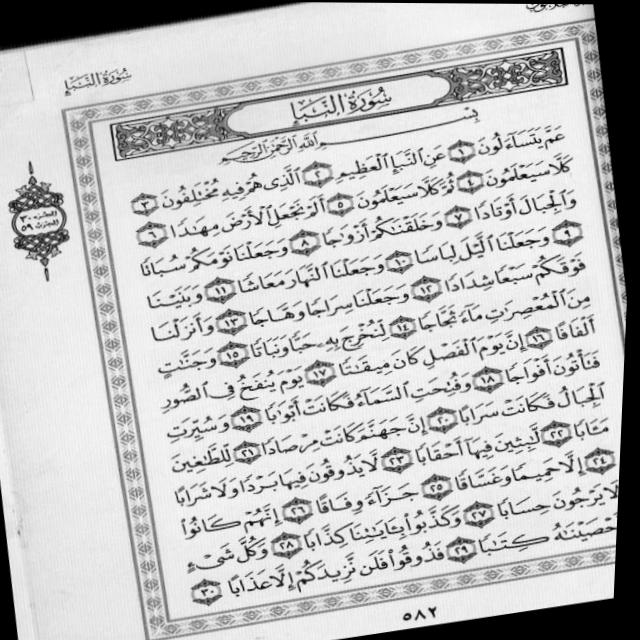 سُورَةُ النَّبَإِ
الجزء ٣٠
الحزب ٥٩
سُورَةُ النَّبَإِ
بِسْمِ اللَّهِ الرَّحْمَٰنِ الرَّحِيمِ
عَمَّ يَتَسَاءَلُونَ ١ عَنِ النَّبَإِ الْعَظِيمِ ٢ الَّذِي هُمْ فِيهِ مُخْتَلِفُونَ ٣
كَلَّا سَيَعْلَمُونَ ٤ ثُمَّ كَلَّا سَيَعْلَمُونَ ٥ أَلَمْ نَجْعَلِ الْأَرْضَ مِهَٰدًا ٦
وَالْجِبَالَ أَوْتَادًا ٧ وَخَلَقْنَٰكُمْ أَزْوَٰجًا ٨ وَجَعَلْنَا نَوْمَكُمْ سُبَاتًا
٩ وَجَعَلْنَا الَّيْلَ لِبَاسًا ١٠ وَجَعَلْنَا النَّهَارَ مَعَاشًا ١١ وَبَنَيْنَا
فَوْقَكُمْ سَبْعًا شِدَادًا ١٢ وَجَعَلْنَا سِرَاجًا وَهَّاجًا ١٣ وَأَنزَلْنَا
مِنَ الْمُعْصِرَٰتِ مَاءً ثَجَّاجًا ١٤ لِّنُخْرِجَ بِهِ حَبًّا وَنَبَاتًا ١٥ وَجَنَّٰتٍ
أَلْفَافًا ١٦ إِنَّ يَوْمَ الْفَصْلِ كَانَ مِيقَٰتًا ١٧ يَوْمَ يُنفَخُ فِي الصُّورِ
فَتَأْتُونَ أَفْوَاجًا ١٨ وَفُتِحَتِ السَّمَاءُ فَكَانَتْ أَبْوَٰبًا ١٩ وَسُيِّرَتِ
الْجِبَالُ فَكَانَتْ سَرَابًا ٢٠ إِنَّ جَهَنَّمَ كَانَتْ مِرْصَادًا ٢١ لِّلطَّٰغِينَ
مَـَٔابًا ٢٢ لَّٰبِثِينَ فِيهَا أَحْقَابًا ٢٣ لَّا يَذُوقُونَ فِيهَا بَرْدًا وَلَا شَرَابًا
٢٤ إِلَّا حَمِيمًا وَغَسَّاقًا ٢٥ جَزَاءً وِفَاقًا ٢٦ إِنَّهُمْ كَانُوا
لَا يَرْجُونَ حِسَابًا ٢٧ وَكَذَّبُوا بِـَٔايَٰتِنَا كِذَّابًا ٢٨ وَكُلَّ شَيْءٍ
أَحْصَيْنَٰهُ كِتَٰبًا ٢٩ فَذُوقُوا فَلَن نَّزِيدَكُمْ إِلَّا عَذَابًا ٣٠
٥٨٢